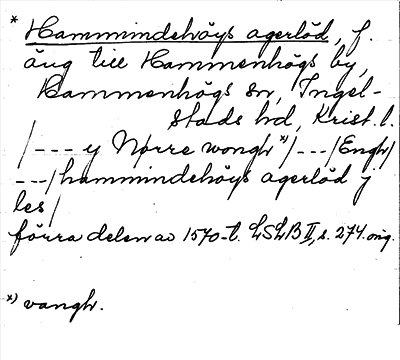 * Hammindehöys agerlöd, f.
äng till Hammenhögs by,
Hammenhögs sn, Ingel-
stads hd, Krist. l.
/--- y Nørre wongh *)/---/Engh/
---/hammindehöys agerlöd j
les/
förra delen av 1570-t. LSLB II, s. 274. orig.
*) vangh.